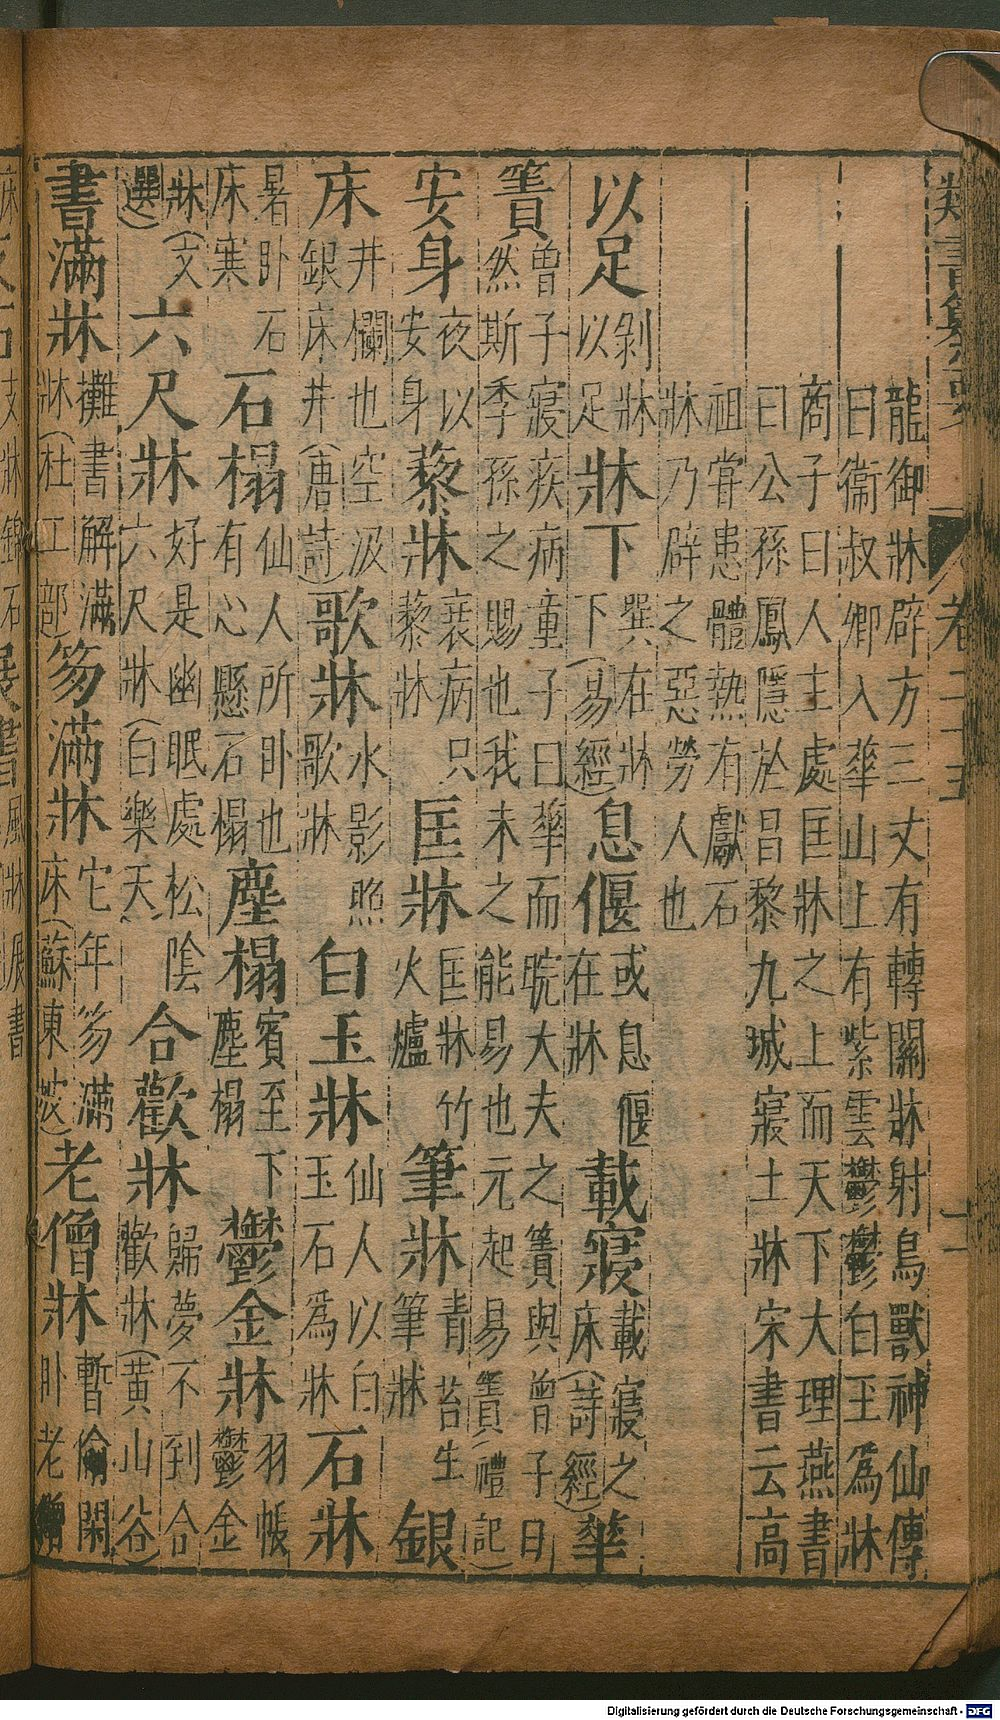 類書纂要 卷二十五
龍御牀辟方三丈有轉關牀射鳥獸神仙傳
曰衞叔卿入華山上有紫雲鬱鬱白玉爲牀
商子曰人主處匡牀之上而天下大理燕書
曰公孫鳳隱於昌黎九城寢土牀宋書云高
祖嘗患體熱有獻石
牀乃辟之惡勞人也
以足 剝牀以足 牀下 巽在牀下(易經) 息偃 或息偃在牀 載寢 載寢之床(詩經) 華
簀 曾子寢疾病童子曰華而睆大夫之簀與曾子曰然斯季孫之賜也我未之能易也元起易簀(禮記)
安身 夜以安身 藜牀 衰病只藜牀 匡牀 匡牀竹火爐 筆牀 青苔生筆牀 銀
床 井欄也空汲銀床井(唐詩) 歌牀 水影照歌牀 白玉牀 仙人以白玉石爲牀 石牀
暑卧石床寒 石榻 仙人所卧也有心懸石榻 塵榻 賓至下塵榻 鬱金牀 羽帳鬱金
牀(文選) 六尺牀 好是幽眠處松陰六尺牀(白樂天) 合歡牀 歸夢不到合歡牀(黃山谷)
書滿牀 攤書解滿牀(杜工部) 笏滿牀 它年笏滿床(蘇東坡) 老僧牀 暫偷閑卧老僧
Digitalisierung gefördert durch die Deutsche Forschungsgemeinschaft - DFG